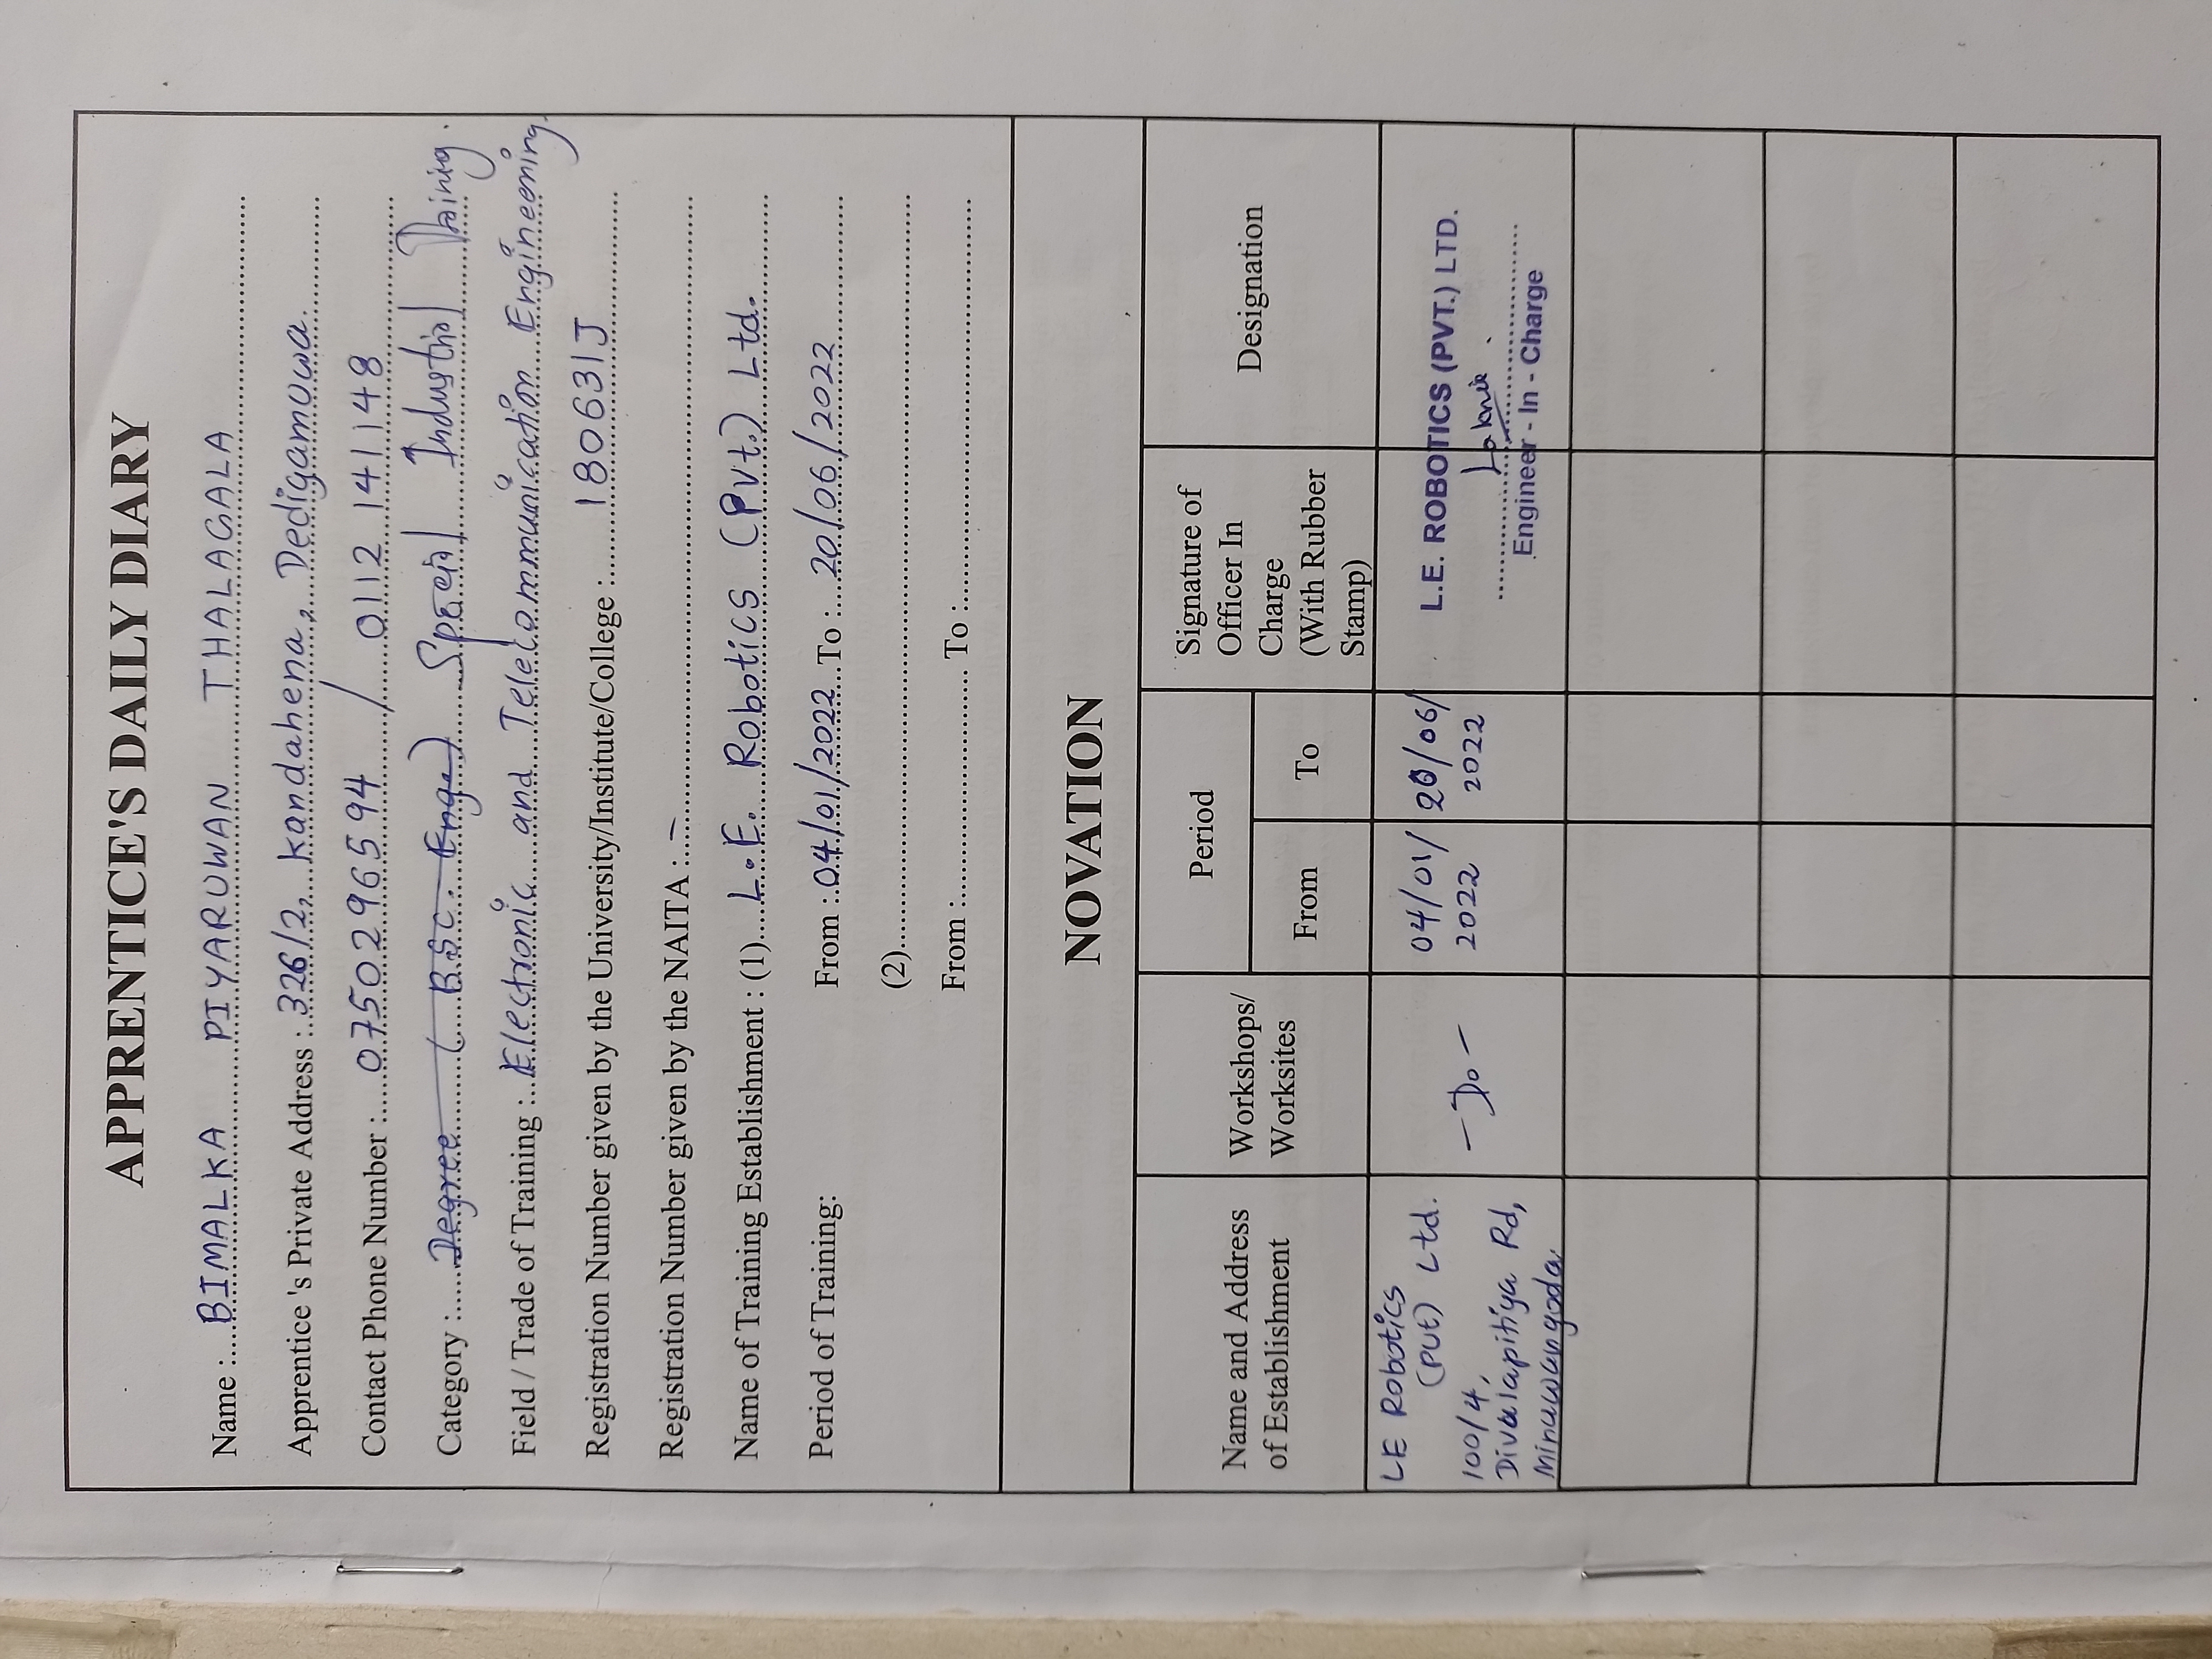 APPRENTICE'S DAILY DIARY
Name : BIMALKA PIYARUWAN THALAGALA
Apprentice 's Private Address : 326/2, Kandahena, Dedigamuwa.
Contact Phone Number : 0750296594 / 0112 141148
Category : Degree ( B.Sc. Eng.) Special Industrial Training.
Field / Trade of Training : Electronic and Telecommunication Engineering.
Registration Number given by the University/Institute/College : 180631J
Registration Number given by the NAITA : –
Name of Training Establishment : (1) L.E. Robotics (Pvt.) Ltd.
Period of Training: From : 04/01/2022 To : 20/06/2022
(2)
From : To :
NOVATION
Name and Address
of Establishment
Workshops/
Worksites
Period
From
To
Signature of
Officer In
Charge
(With Rubber
Stamp)
Designation
LE Robotics
(Pvt) Ltd.
100/4,
Divulapitiya Rd,
Minuwangoda.
– Do –
04/01/
2022
20/06/
2022
L.E. ROBOTICS (PVT.) LTD.
Engineer - In - Charge